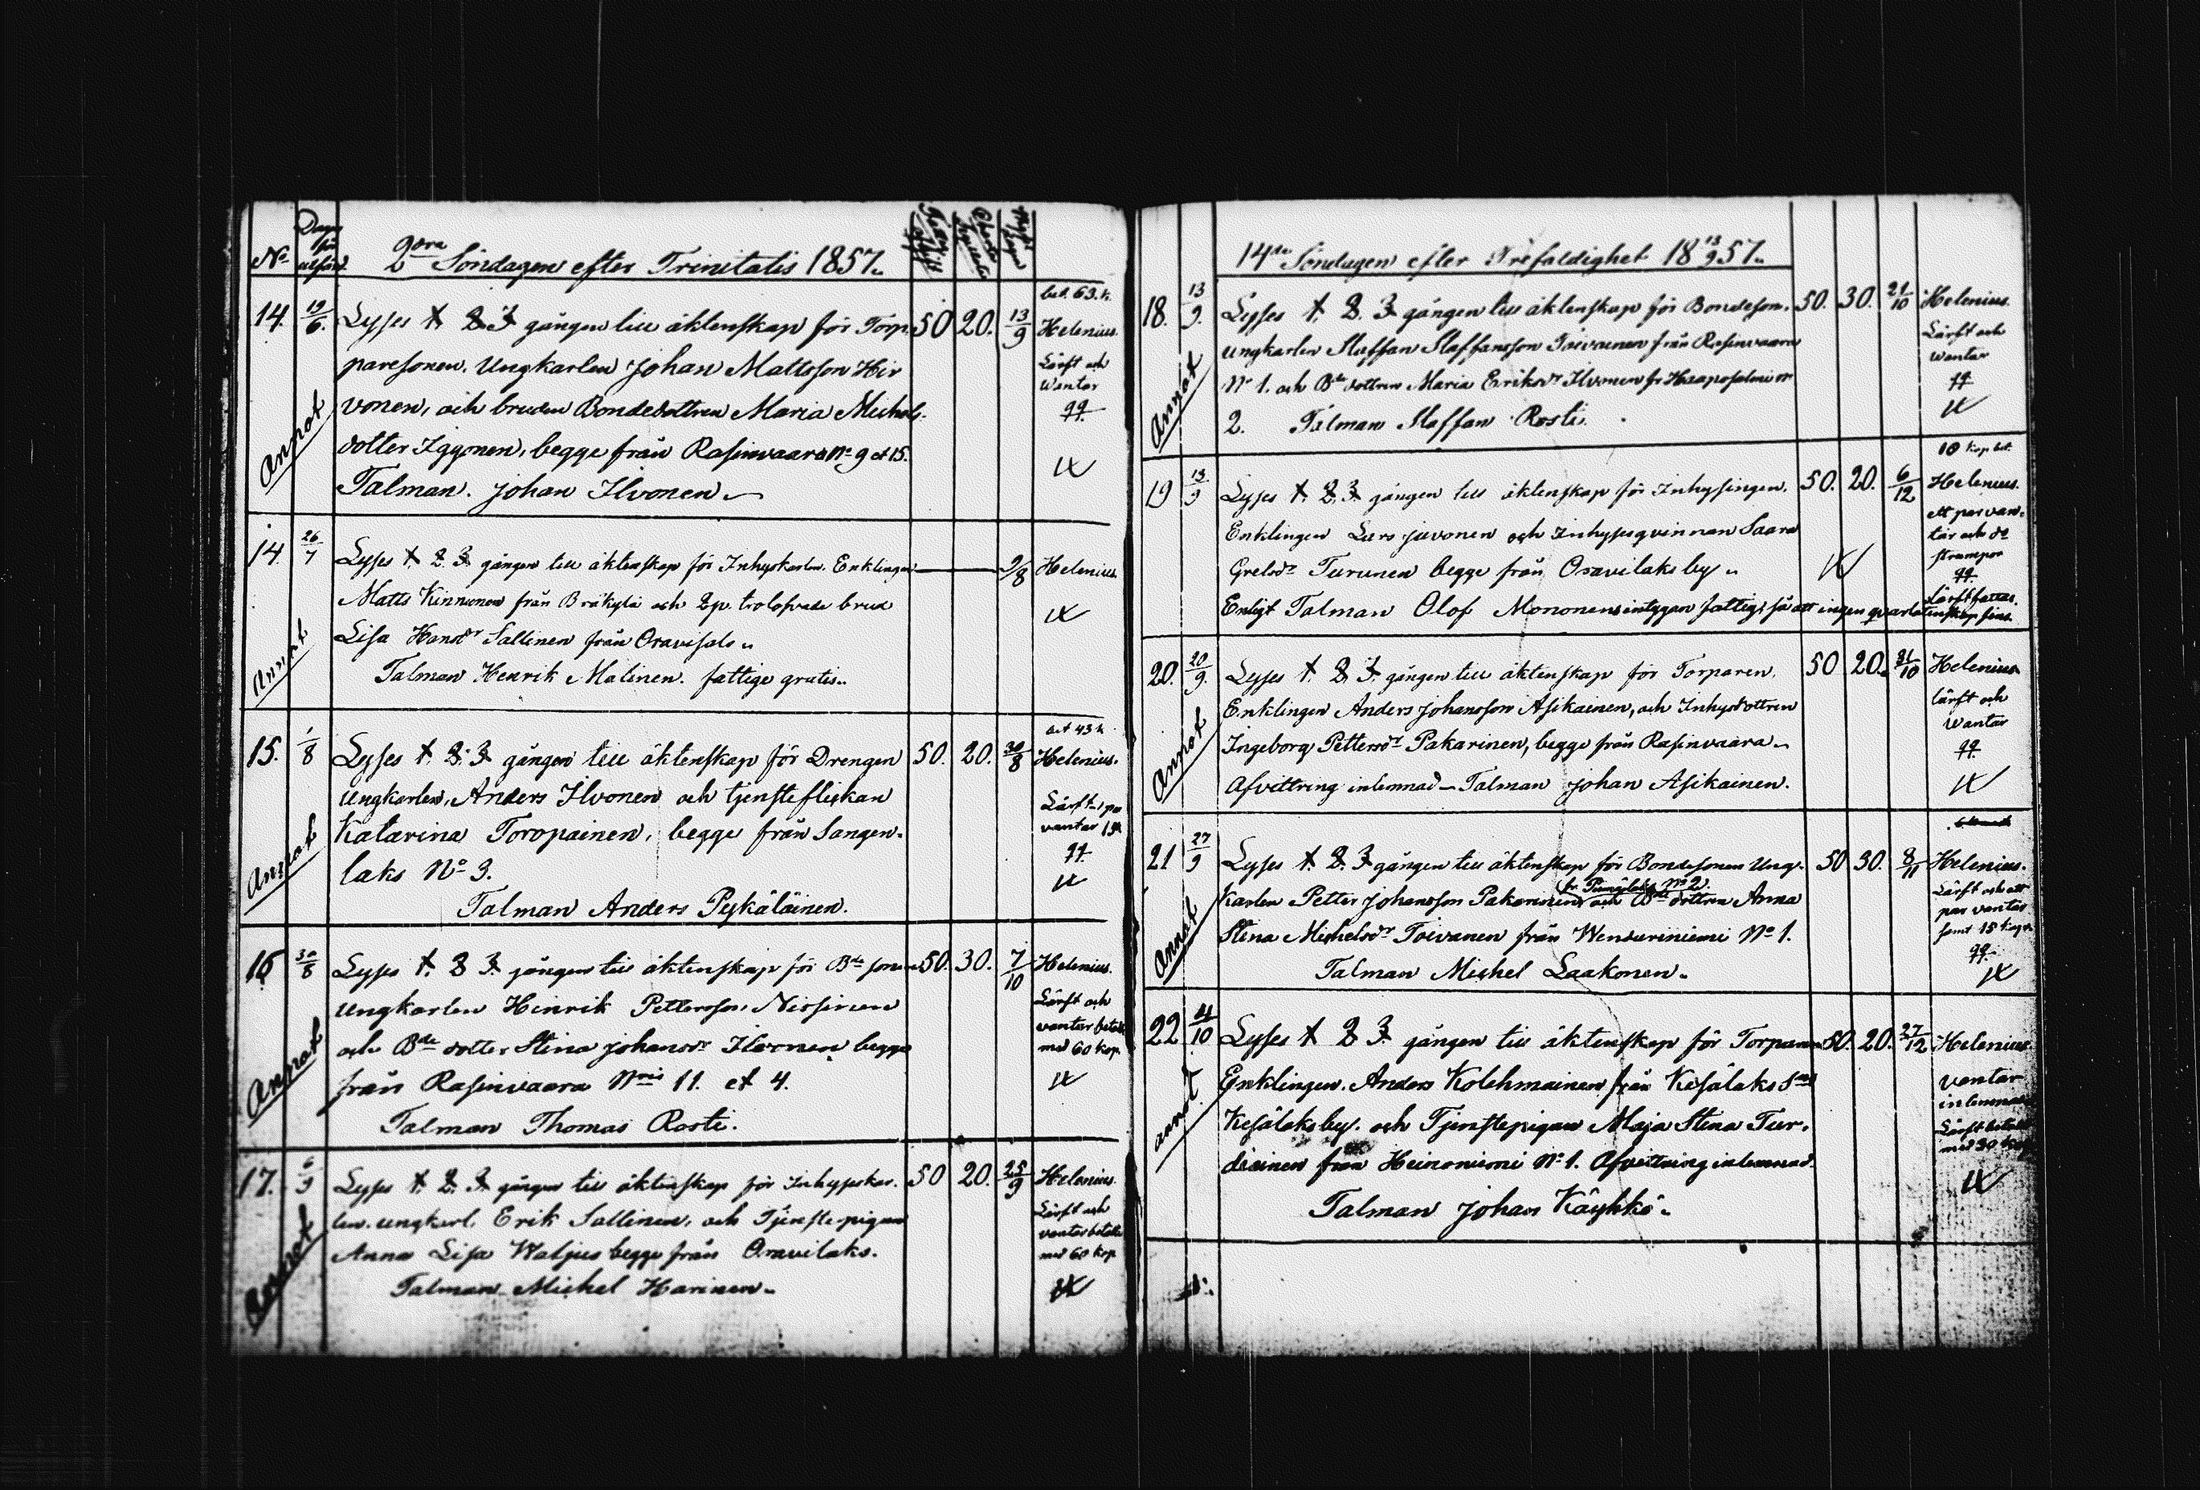 No 2dra Söndagen efter Trinitatis 1857.
14. 19/6. Lyses 1. 2. 3 gången till äktenskap för Torp- 50 20. 13/9 Helenius.
bet. 63. k.
paresonen, Ungkarlen Johan Mattsson Hir Lärft och
vonen, och bruden Bondedottren Maria Michels- Wantar
dotter Iggonen, begge från Rasinvaara No 9 et 15.
Talman. Johan Ilvonen
Annot
14. 26/7 Lyses 1. 2. 3. gången till äktenskap för Inhyskarlen Enklingen 9/8 Helenius.
Matts Kinnunen från Bräkylä och trolofvade brud
Lisa Hansdr Sallinen från Oravisalo
Talman Henrik Malinen. fattige gratis.
Annot
bet 43 k
15. 1/8 Lyses 1. 2. 3 gången till äktenskap för Drengen 50. 20. 30/8 Helenius.
Ungkarlen, Anders Ilvonen och tjensteflickan Lärft 1 par
Katarina Toropainen, begge från Sangen- vantar
laks No 3.
Talman Anders Pykäläinen.
Annot
16 30/8 Lyses 1. 2 3. gången till äktenskap för Bde sonen 50. 30. 7/10 Helenius.
Ungkarlen Hinrik Pettersson Nissinen Lärft och
och Bde dotter Stina Johansdr Ilvonen begge vantar betalt
från Rasinvaara Nris 11. et 4. med 60 kop.
Talman Thomas Rosti.
Annot
17. 6/9 Lyses 1. 2. 3. gången till äktenskap för Inhyskar- 50 20. 25/9 Helenius.
len. ungkarl. Erik Sallinen, och Tjenstepigan Lärft och
Anna Lisa Waljus begge från Oravilaks. vantar betalt
Talman Michel Harinen. med 60 kop
Annot
14de Söndagen efter Trefaldighet 18 13/9 57.
18. 13/9. Lyses 1. 2. 3 gången till äktenskap för Bondeson. 50. 30. 21/10 Helenius.
ungkarlen Staffan Staffansson Toivanen från Rasinvaara Lärft och
No 1. och Bde dottren Maria Eriksdr Ilvonen fr Haapasalmi no wantar
2. Talman Staffan Rosti.
Annot
10 kop bet.
19 13/9 Lyses 1. 2. 3. gången till äktenskap för Inhysingen. 50. 20. 6/12 Helenius.
Enklingen Lars Juvonen och Inhysesqvinnan Saara ett par van-
Grelsdr Turunen begge från Oravilaks by tar och do
strumpor
Enligt Talman Olof Mononens intygan fattige så att ingen qvarlåtenskap fins. Lärft fattas.
20. 20/9. Lyses 1. 2. 3. gången till äktenskap för Torparen. 50 20. 21/10 Helenius
Enklingen Anders Johansson Asikainen, och Inhysdottren lärft och
Ingeborg Pettersdr Pakarinen, begge från Rasinvaara. wantar
Afvittring inlemnad. Talman Johan Asikainen.
Annot
21 27/9 Lyses 1. 2. 3 gången till äktenskap för Bondesonen Ung- 50 30. 8/11 Helenius.
karlen Petter Johansson Pakarinen och Bde dottren Anna Lärft och ett
Stina Michelsdr Toivanen från Wensuriniemi No 1. par vantar
Talman Michel Laakonen. samt 15 kop
Annot
22 4/10 Lyses 1. 2 3. gången till äktenskap för Torparen 50. 20. 27/12 Helenius
Enklingen. Anders Kolehmainen från Kesälaks vantar
Kesälaks by. och Tjenstepigan Maja Stina Tur- inlemnat
diainen från Heinoniemi No 1. Afvittring inlemnad. Lärft betalt
Talman Johan Käyhkö. med 30 kop
annot